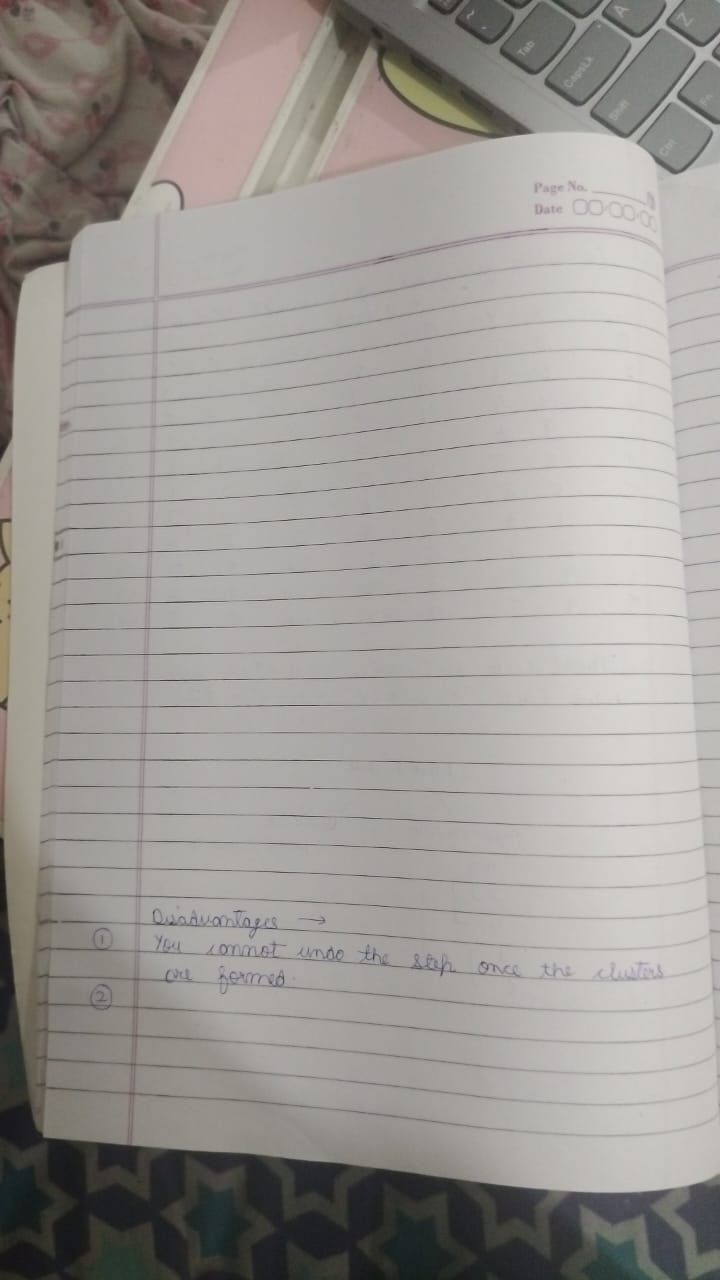 ~
Tab
CapsLk
Shift
Ctrl
A
Z
Fn
Page No.
Date
Disadvantages →
① You cannot undo the step once the clusters
are formed.
②